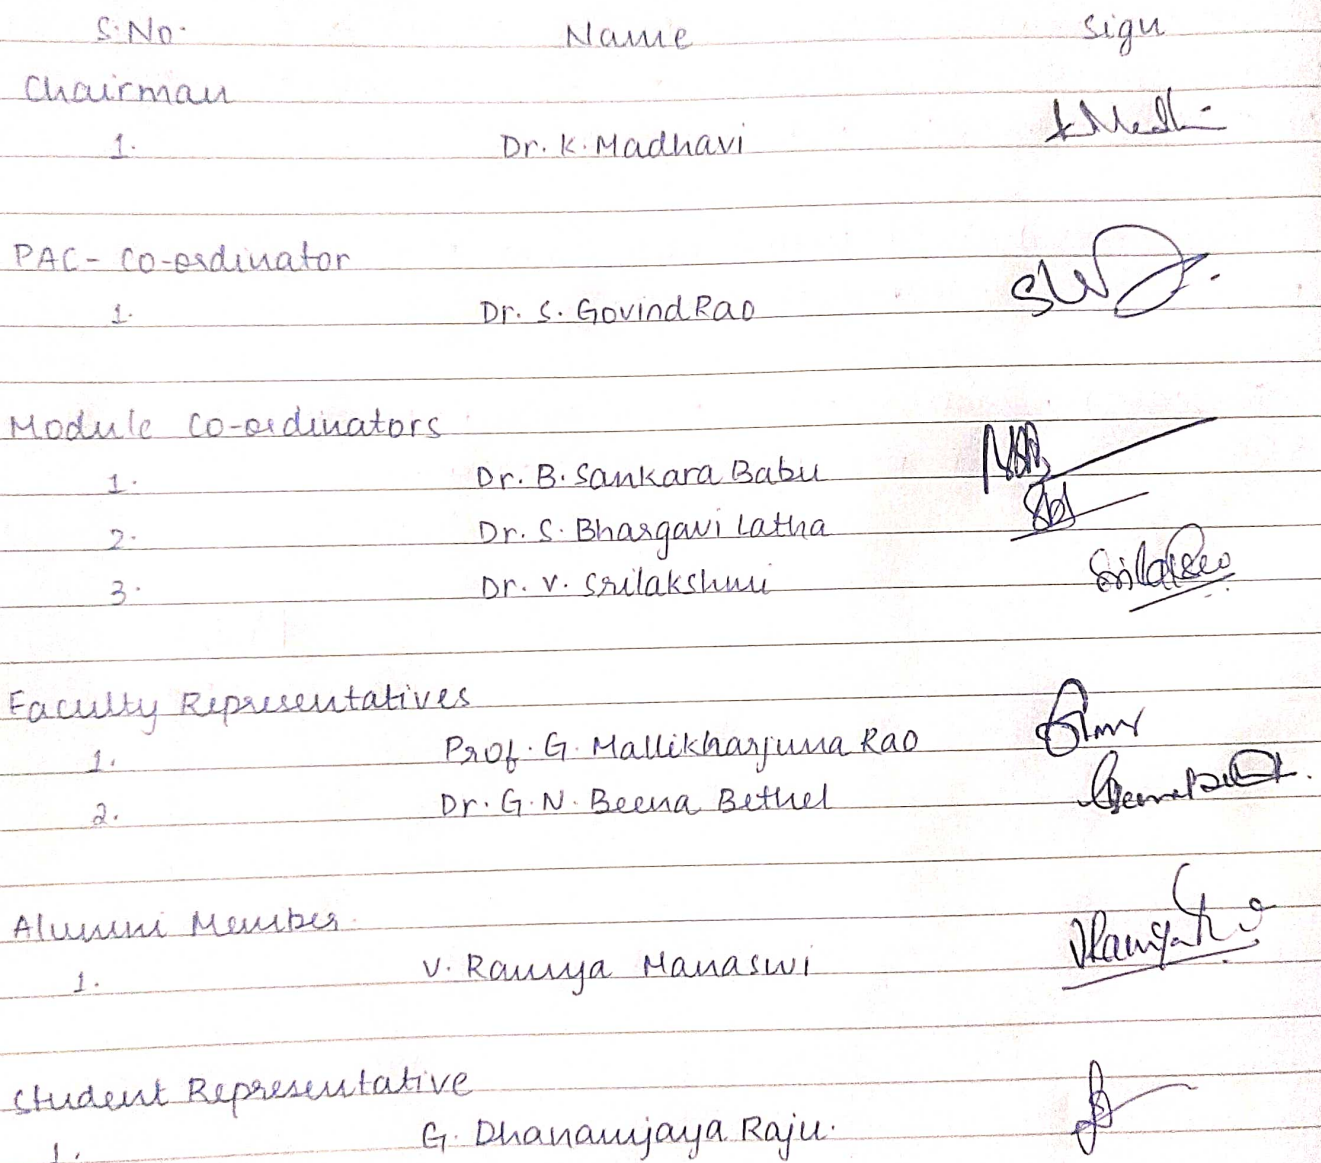 S.No. Name Sign
Chairman
1. Dr. K. Madhavi
PAC- Co-ordinator
1. Dr. S. Govind Rao
Module Co-ordinators
1. Dr. B. Sankara Babu
2. Dr. S. Bhargavi Latha
3. Dr. V. Srilakshmi
Faculty Representatives
1. Prof. G. Mallikharjuna Rao
2. Dr. G. N. Beena Bethel
Alumni Member
1. V. Ramya Manaswi
Student Representative
1. G. Dhanamjaya Raju.